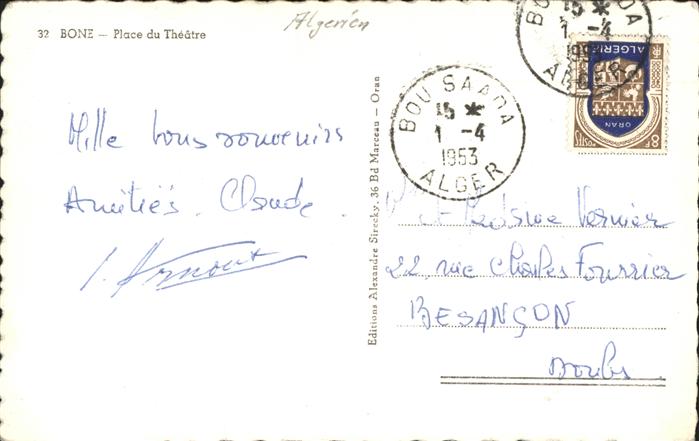 32 BONE — Place du Théâtre
Algerien
Mille bons souvenirs
Amitiés. Claude.
BOU SAADA
15 *
1 -4
1953
ALGER
BOU SAADA
15 *
1 -4
ALGER
ALGÉRIE
ORAN
8F POSTES
Editions Alexandre Sirecky, 36 Bd Marceau — Oran
et Vernier
22, rue Charles Fourrier
BESANÇON
Doubs.